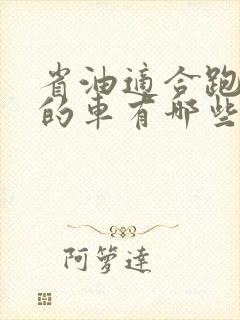 省油適合跑
的車有哪些
阿箩達